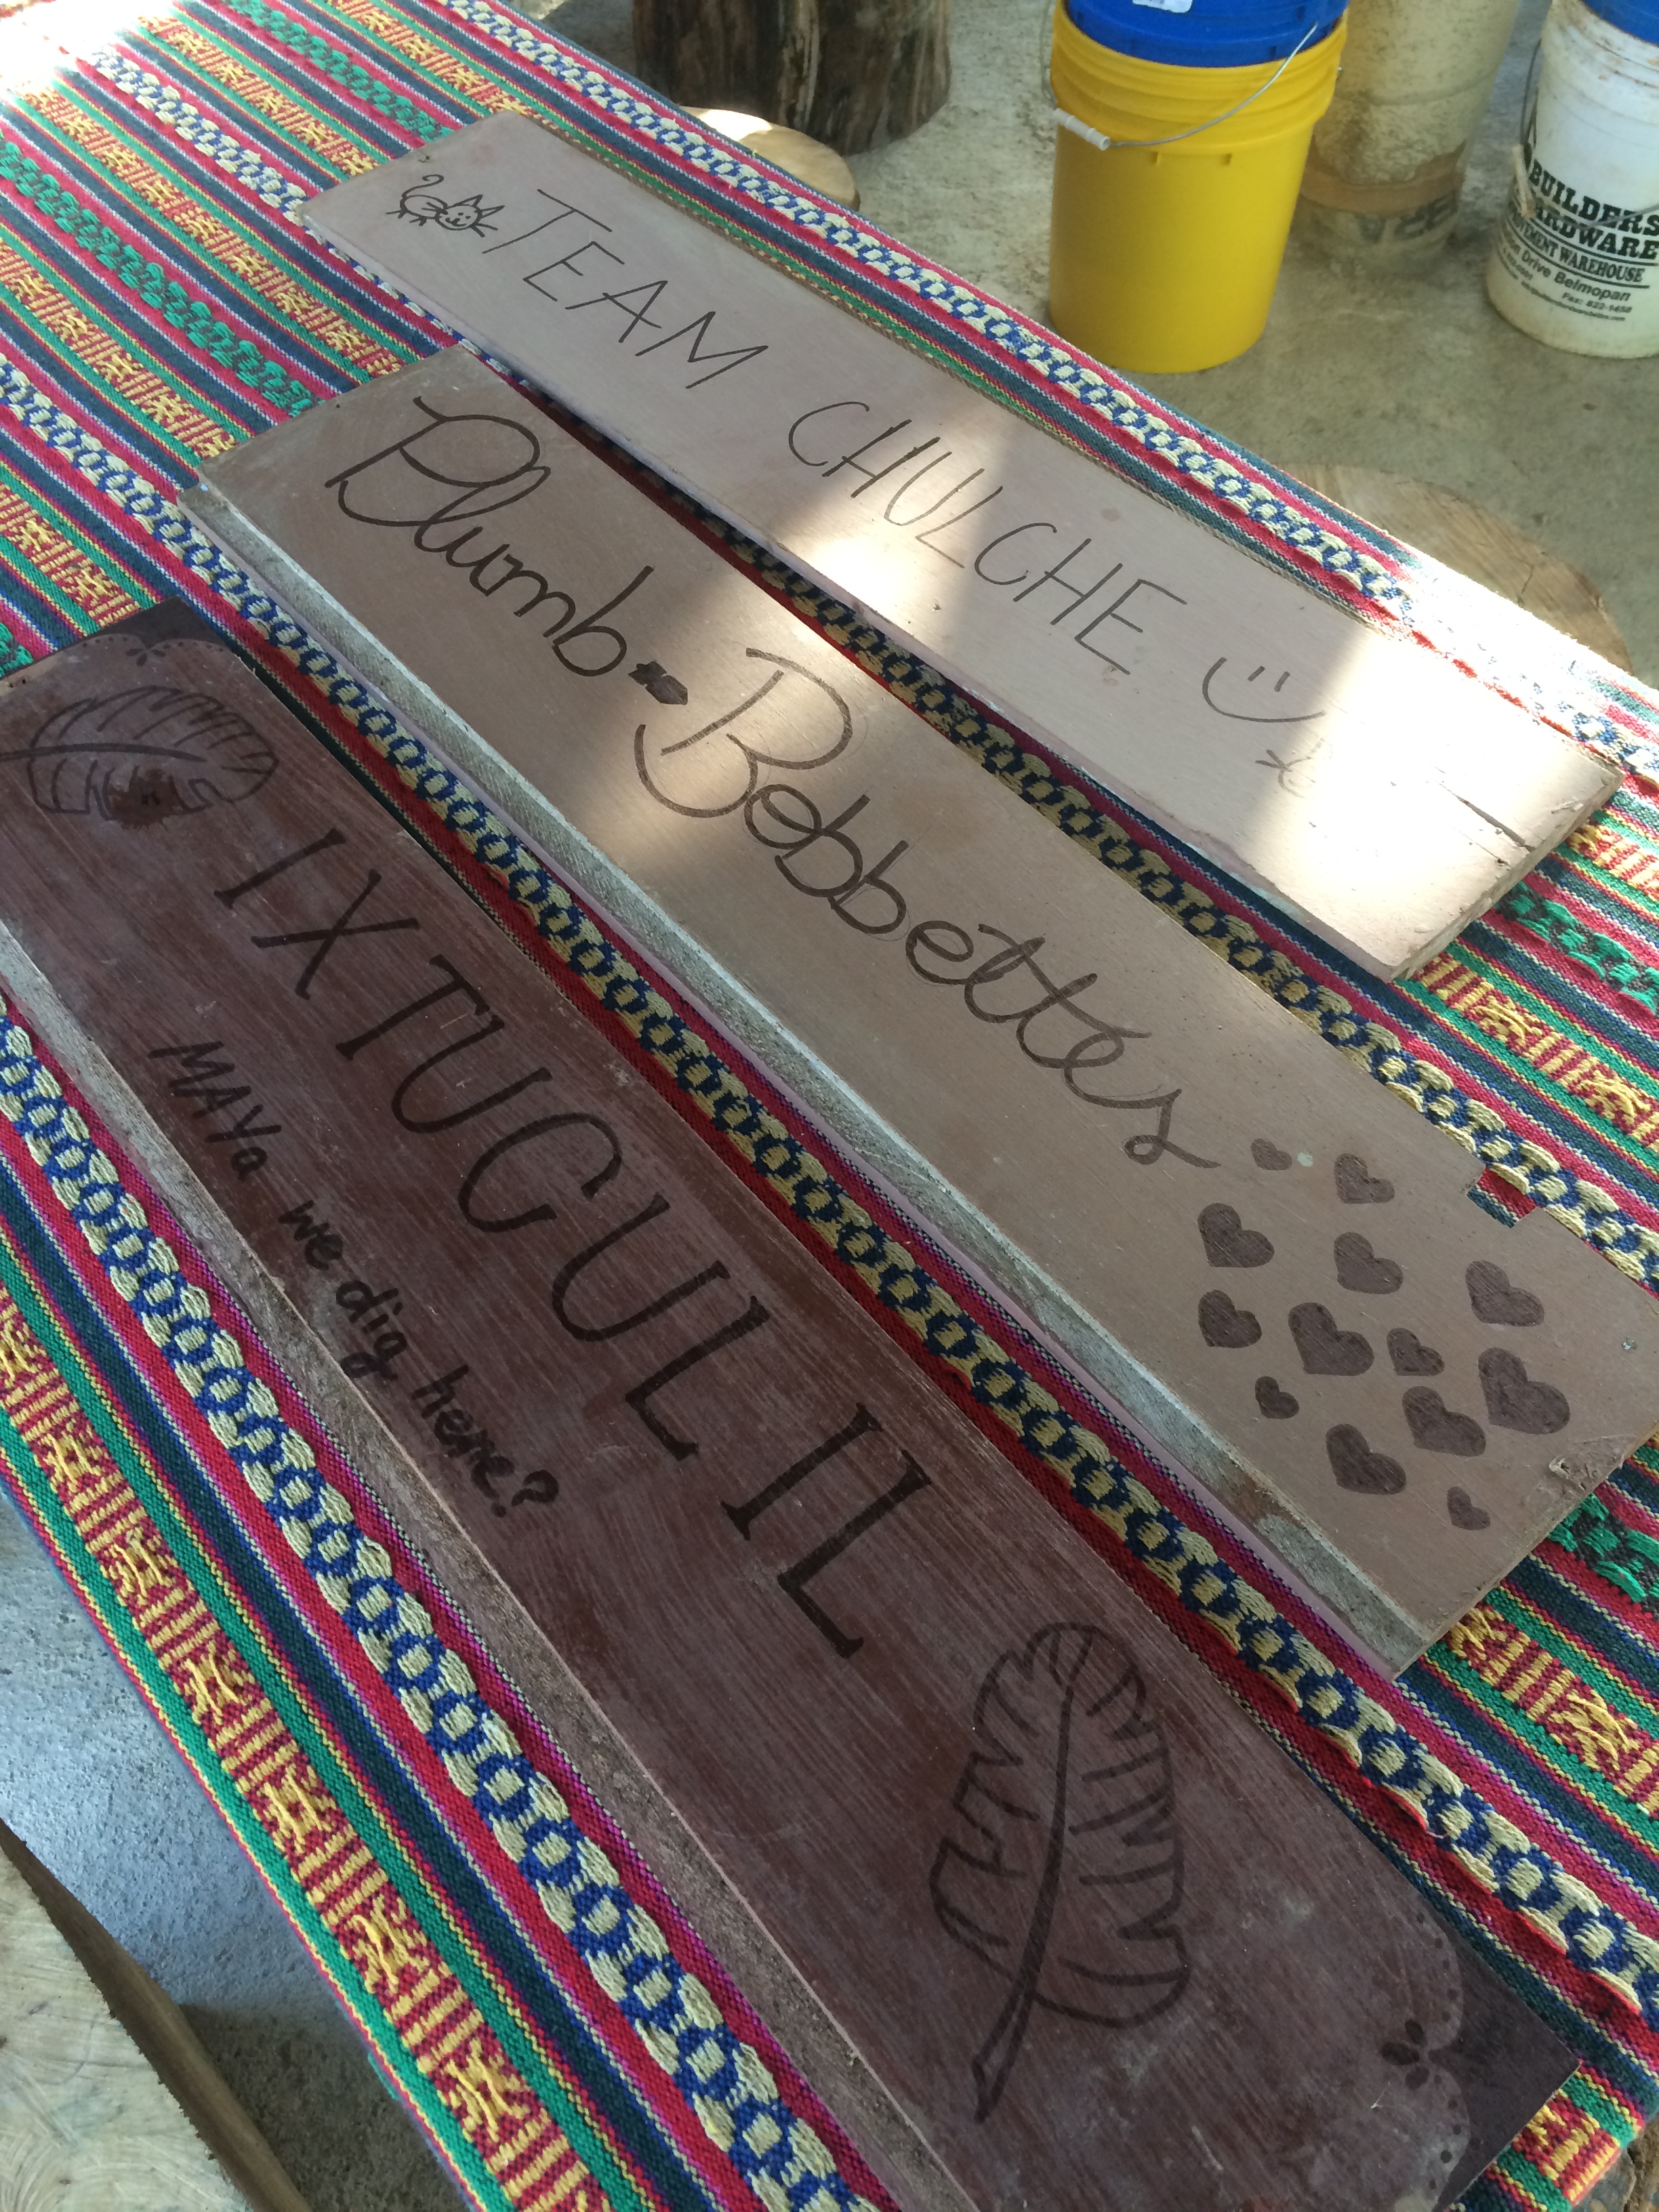 TEAM CHULCHE
Plumb-Bobbettes
IXTUCUL IL
MAYa we dig here?
BUILDERS
HARDWARE
Drive Belmopan
WAREHOUSE
Fax: 822-1458